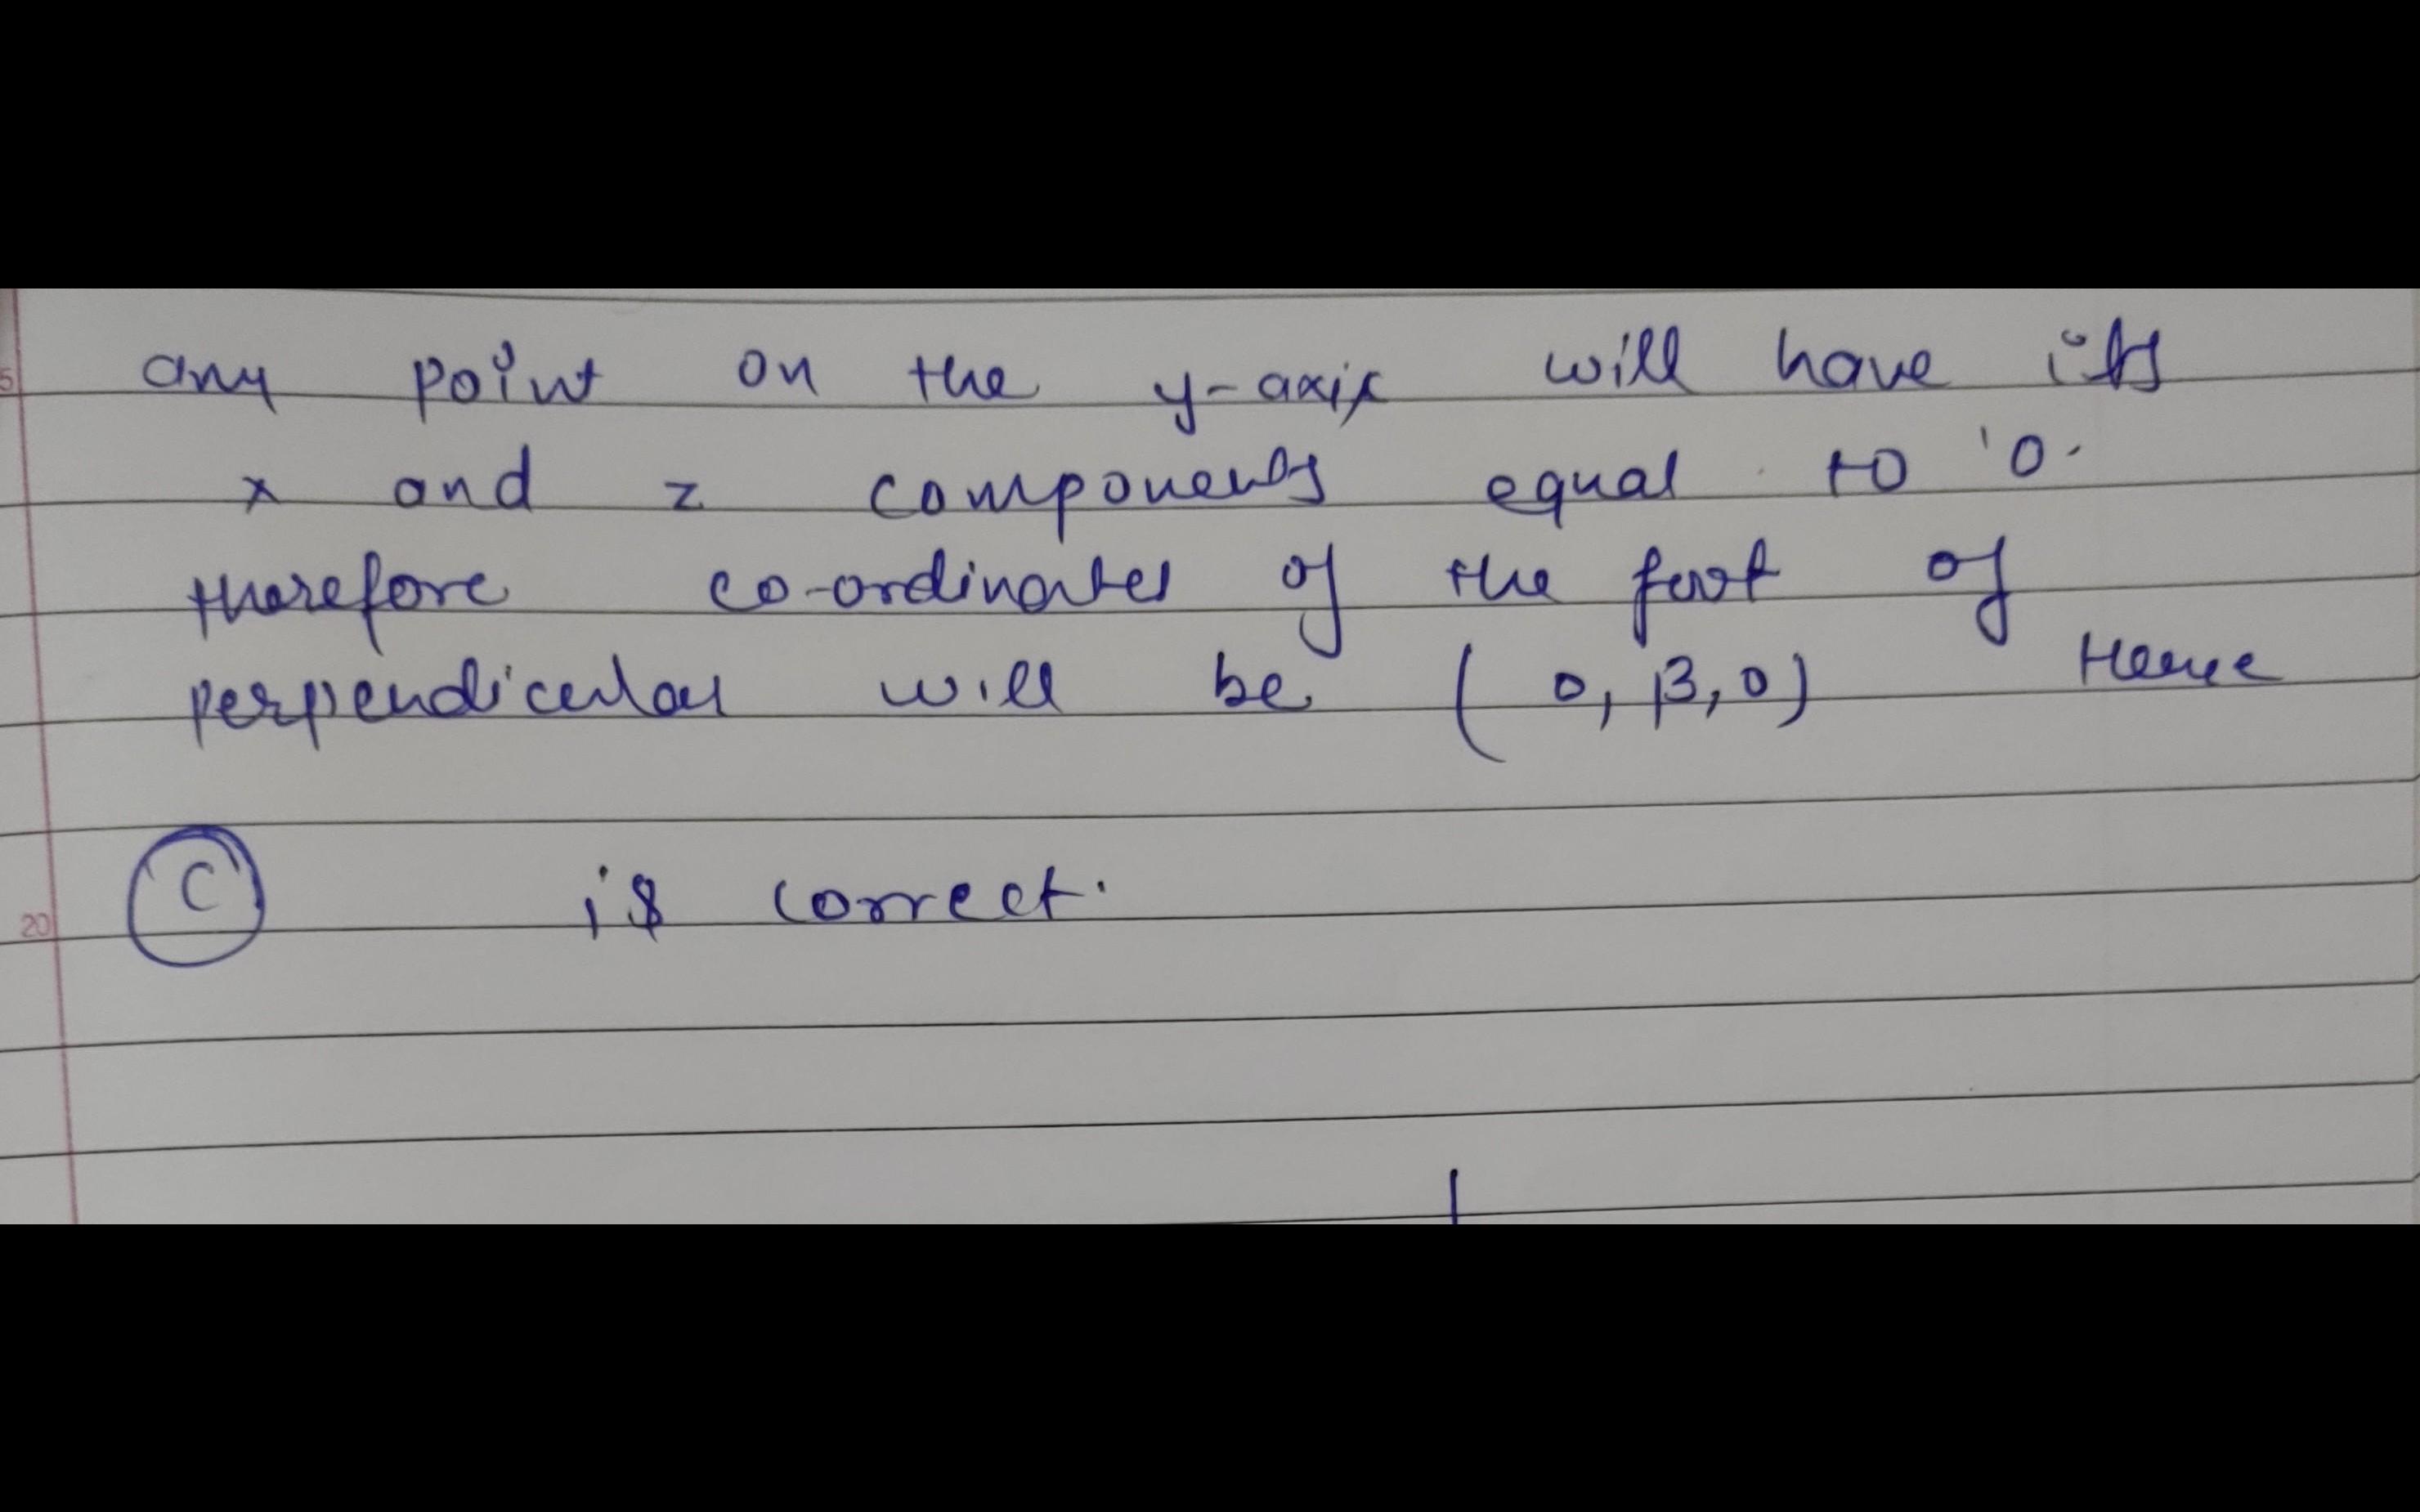 any point on the y-axis will have its
x and z components equal to '0.
therefore co-ordinates of the foot of
perpendicular will be (0, β, 0) Hence
C is correct.
20